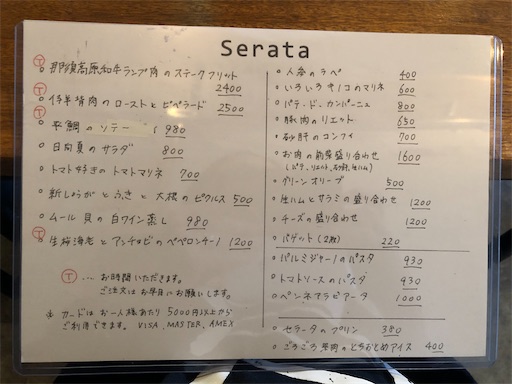 Serata
Ⓣ
○ 那須高原和牛ランプ肉のステークフリット
2400
Ⓣ
○ 仔羊背肉のローストとピペラード 2500
Ⓣ
○ 真鯛のソテー 980
○ 日向夏のサラダ 800
○ トマト好きのトマトマリネ 700
○ 新しょうがとふきと大根のピクルス 500
○ ムール貝の白ワイン蒸し 980
Ⓣ
○ 生桜海老とアンチョビのペペロンチーノ 1200
Ⓣ … お時間いただきます。
ご注文はお早目にお願いします。
※ カードはお一人様あたり5000円以上から
ご利用できます。VISA, MASTER, AMEX
○ 人参のラペ 400
○ いろいろキノコのマリネ 600
○ パテ・ド・カンパーニュ 800
○ 豚肉のリエット 650
○ 砂肝のコンフィ 700
○ お肉の前菜盛り合わせ 1600
(パテ、リエット、砂肝、生ハム)
○ グリーンオリーブ 500
○ 生ハムとサラミの盛り合わせ 1200
○ チーズの盛り合わせ 1200
○ バゲット(2枚) 220
○ パルミジャーノのパスタ 930
○ トマトソースのパスタ 930
○ ペンネアラビアータ 1000
○ セラータのプリン 380
○ ごろごろ果肉のとちおとめアイス 400